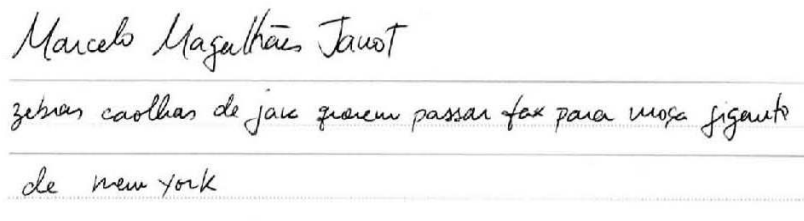 Marcelo Magalhães Janot
zebras caolhas de java querem passar fax para moça gigante
de new york